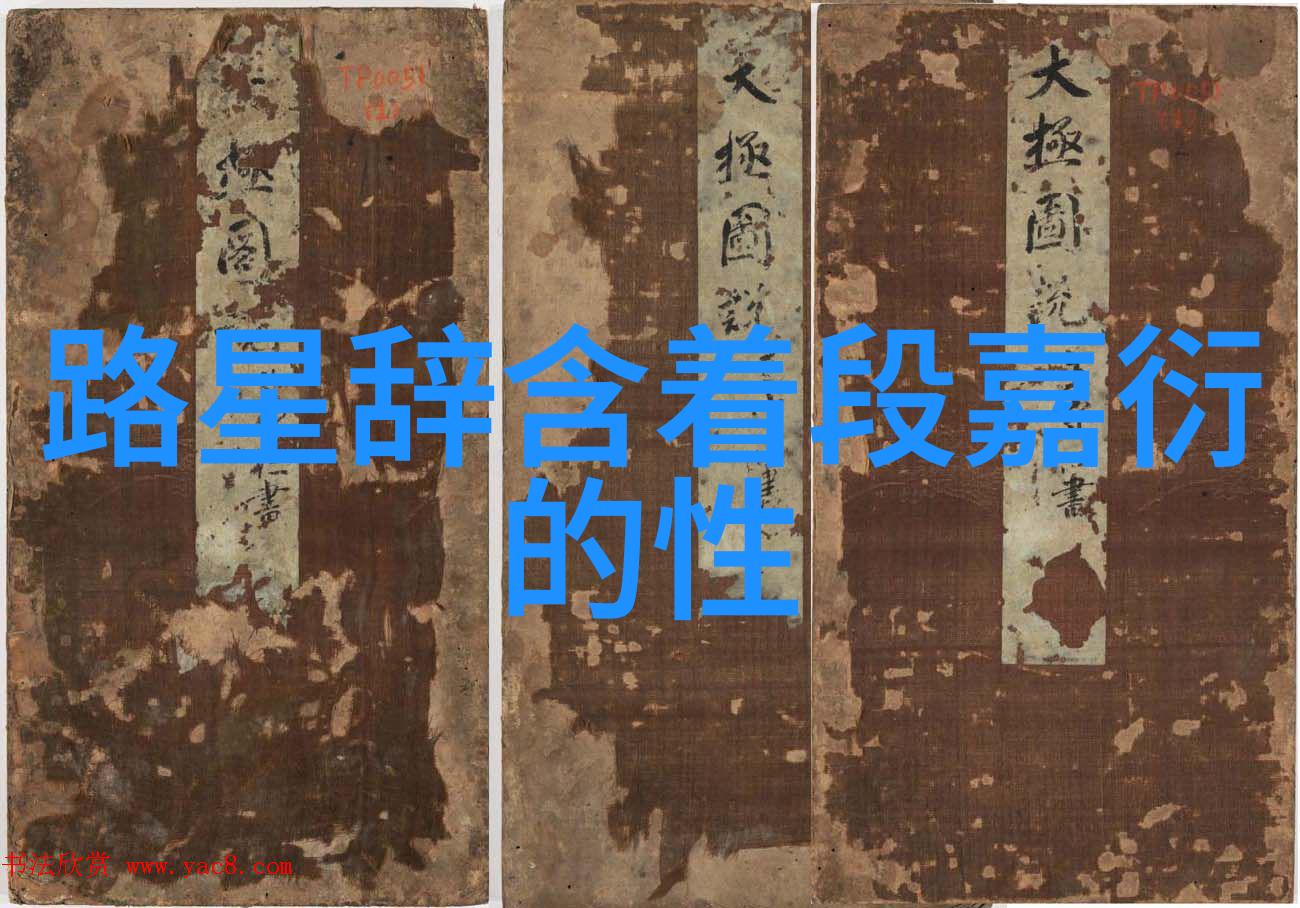 路星辞含着段嘉衍
的性
TP0051
(1)
極
圖
書
大
極
圖
說
書
大
極
圖
說
書
TP0051
书法欣赏 www.yac8.com